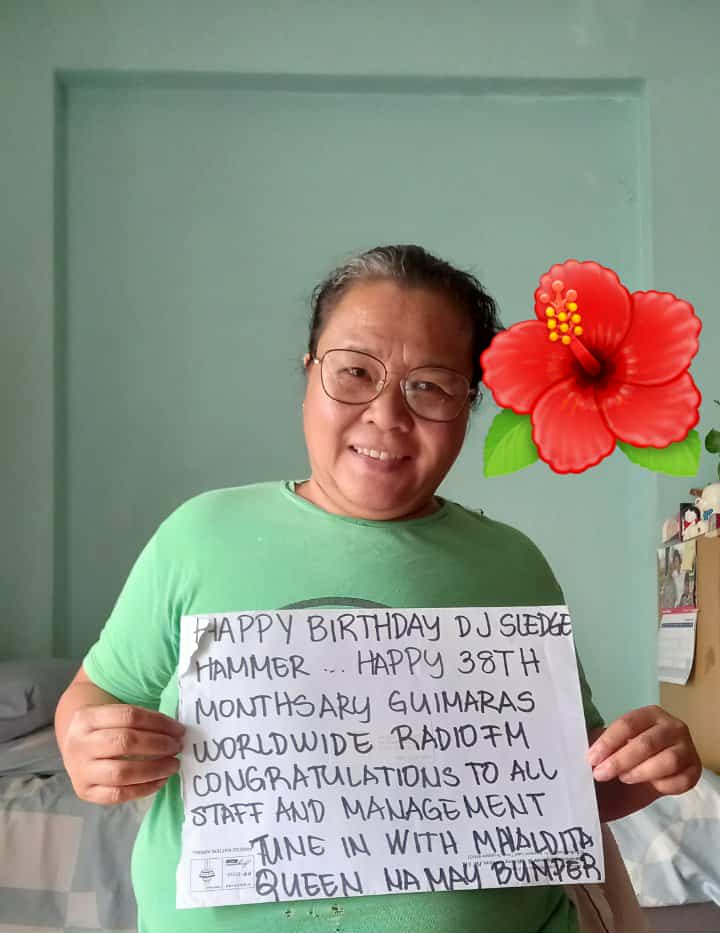 HAPPY BIRTHDAY DJ SLEDGE
HAMMER ... HAPPY 38TH
MONTHSARY GUIMARAS
WORLDWIDE RADIO FM
CONGRATULATIONS TO ALL
STAFF AND MANAGEMENT
TUNE IN WITH MHALDITA
QUEEN NA MAY BUMPER